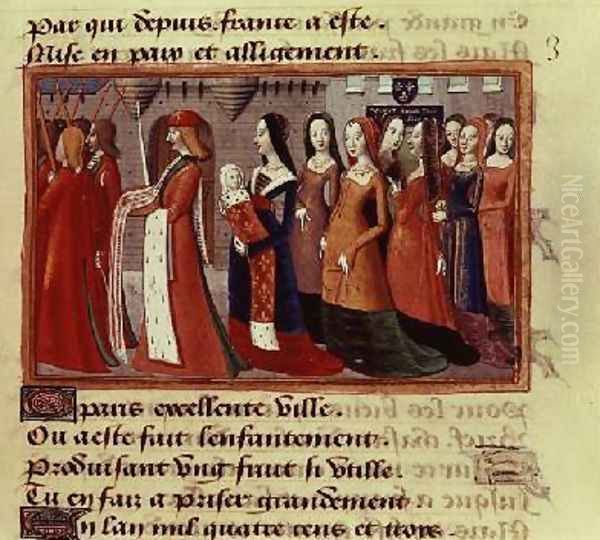 Par qui depuis france a este.
Mise en paix et alligement.
3
O paris excellente ville.
Ou a este fait lenfantement.
Produisant ung fruit si utille
Tu en faiz a priser grandement
En lan mil quatre cens et troys.
NiceArtGallery.com